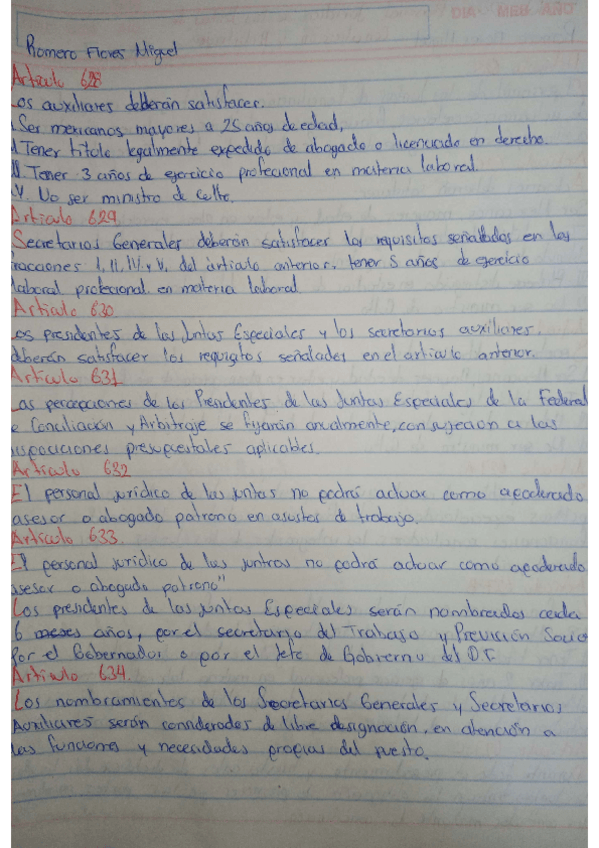 Romero Flores Miguel
Articulo 628
Los auxiliares deberán satisfacer.
I. Ser mexicanos mayores a 25 años de edad,
Tener titulo legalmente expedido de abogado o licenciado en derecho.
Tener 3 años de ejercicio profecional en materia laboral.
V. No ser ministro de culto.
Articulo 629
Secretarios Generales deberán satisfacer los requisitos señalados en las
fracciones I, II, III, y V, del artículo anterior, tener 5 años de ejercicio
laboral profecional en materia laboral
Articulo 630
Los presidentes de las Juntas Especiales y los secretarios auxiliares.
deberán satisfacer los requisitos señalados en el articulo anterior.
Articulo 631
Las percepciones de los Presidentes de las Juntas Especiales de la Federal
de Conciliación y Arbitraje se fijarán anualmente, con sujecion a las
disposiciones presupuestales aplicables.
Articulo 632
El personal jurídico de las juntas no podrá actuar como apoderado
asesor o abogado patrono en asustos de trabajo.
Articulo 633.
El personal jurídico de las juntas no podrá actuar como apoderado
asesor o abogado patrono"
Los presidentes de las juntas Especiales serán nombrados cada
6 meses años, por el secretario del Trabajo y Prevision Social
Por el Gobernador o por el Jefe de Gobierno del DF.
Articulo 634.
Los nombramientos de los Secretarios Generales y Secretarios
Auxiliares serán considerados de libre designación, en atención a
las funciones y necesidades propias del puesto.